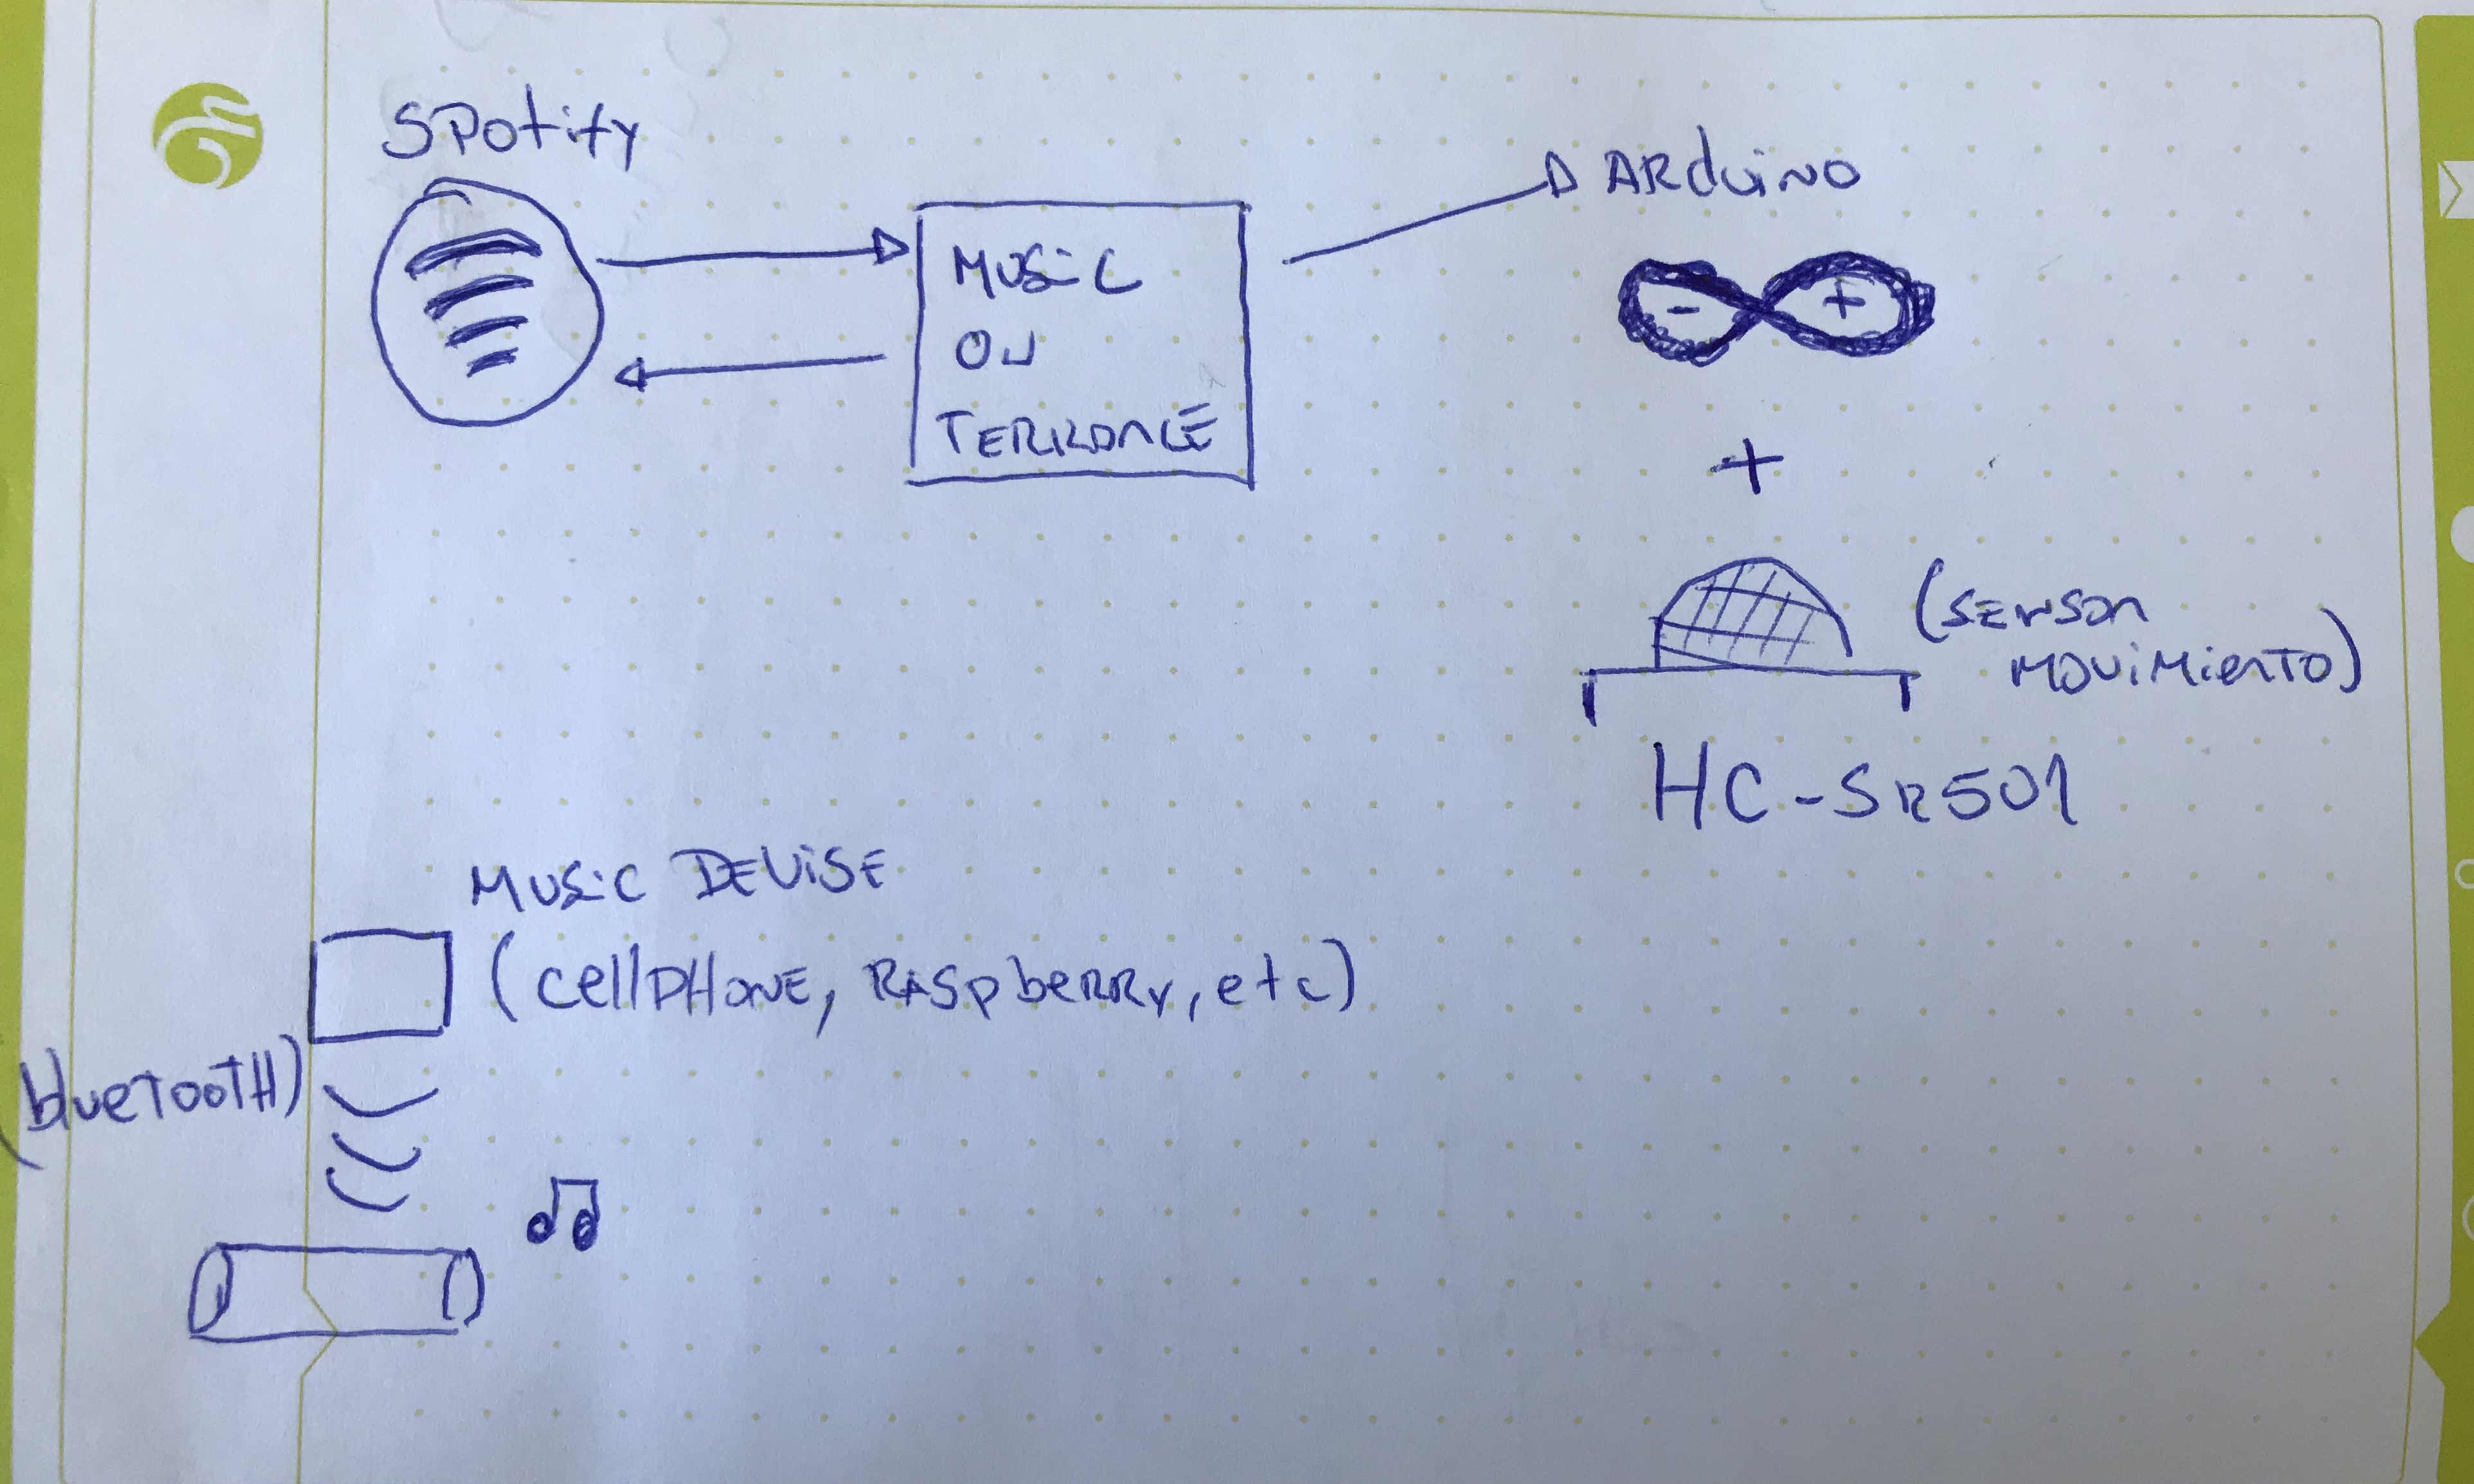 SPotify
MUSiC
ON
TERRANCE
ARduiNO
- +
+
(SENSOR
MOViMiENTO)
HC-SR501
MUSiC DEViSE
(cellPHONE, RASpbeRRy, etc)
(blueTooTH)